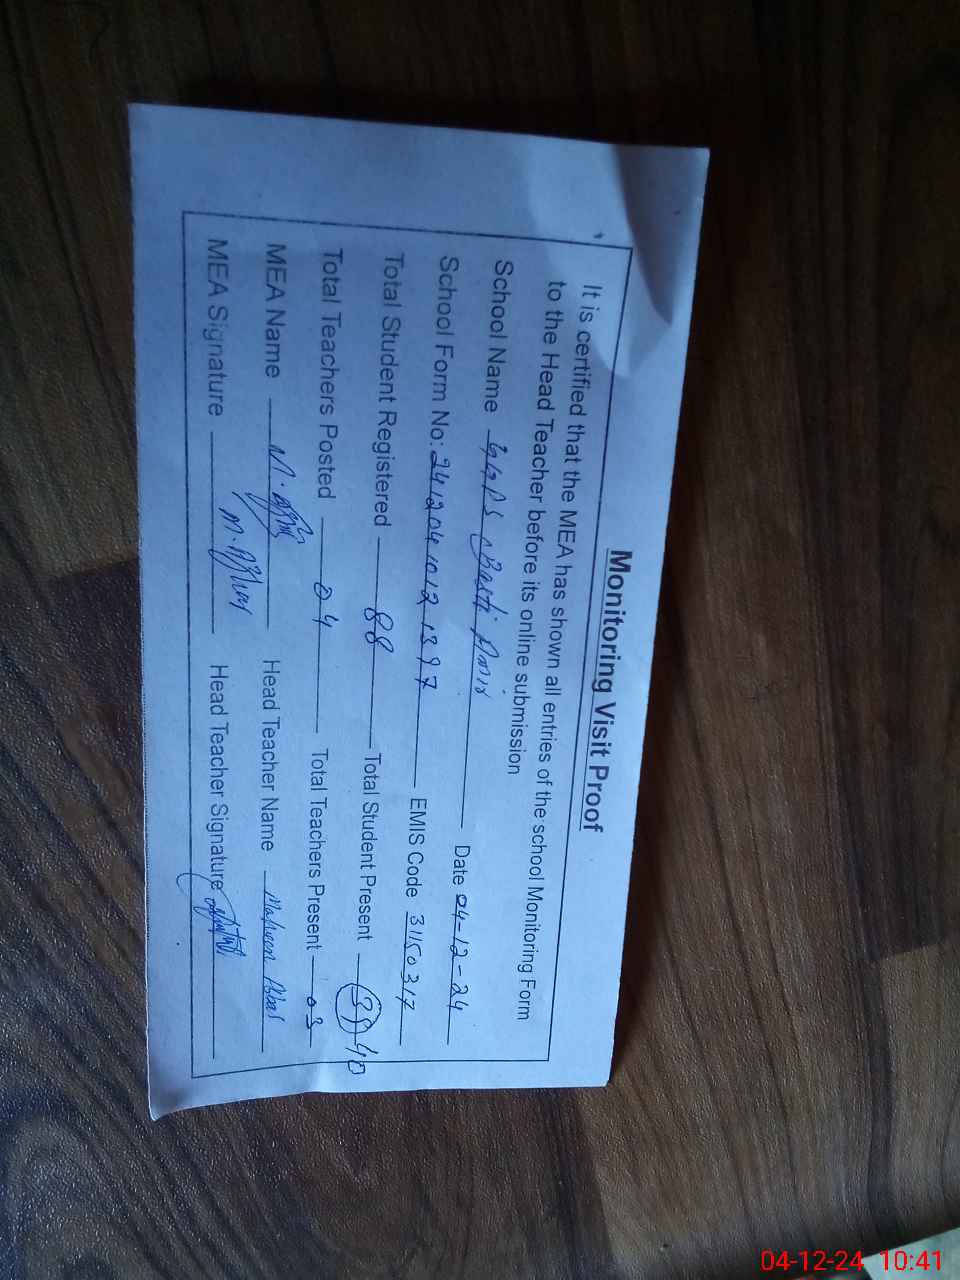 Monitoring Visit Proof
It is certified that the MEA has shown all entries of the school Monitoring Form
to the Head Teacher before its online submission
School Name GGPS Basti Amir Date 04-12-24
School Form No: 2412040121397 EMIS Code 31150317
Total Student Registered 88 Total Student Present 40
Total Teachers Posted 04 Total Teachers Present 03
MEA Name Head Teacher Name Maheen Abbas
MEA Signature M. Azhar Head Teacher Signature
04-12-24 10:41